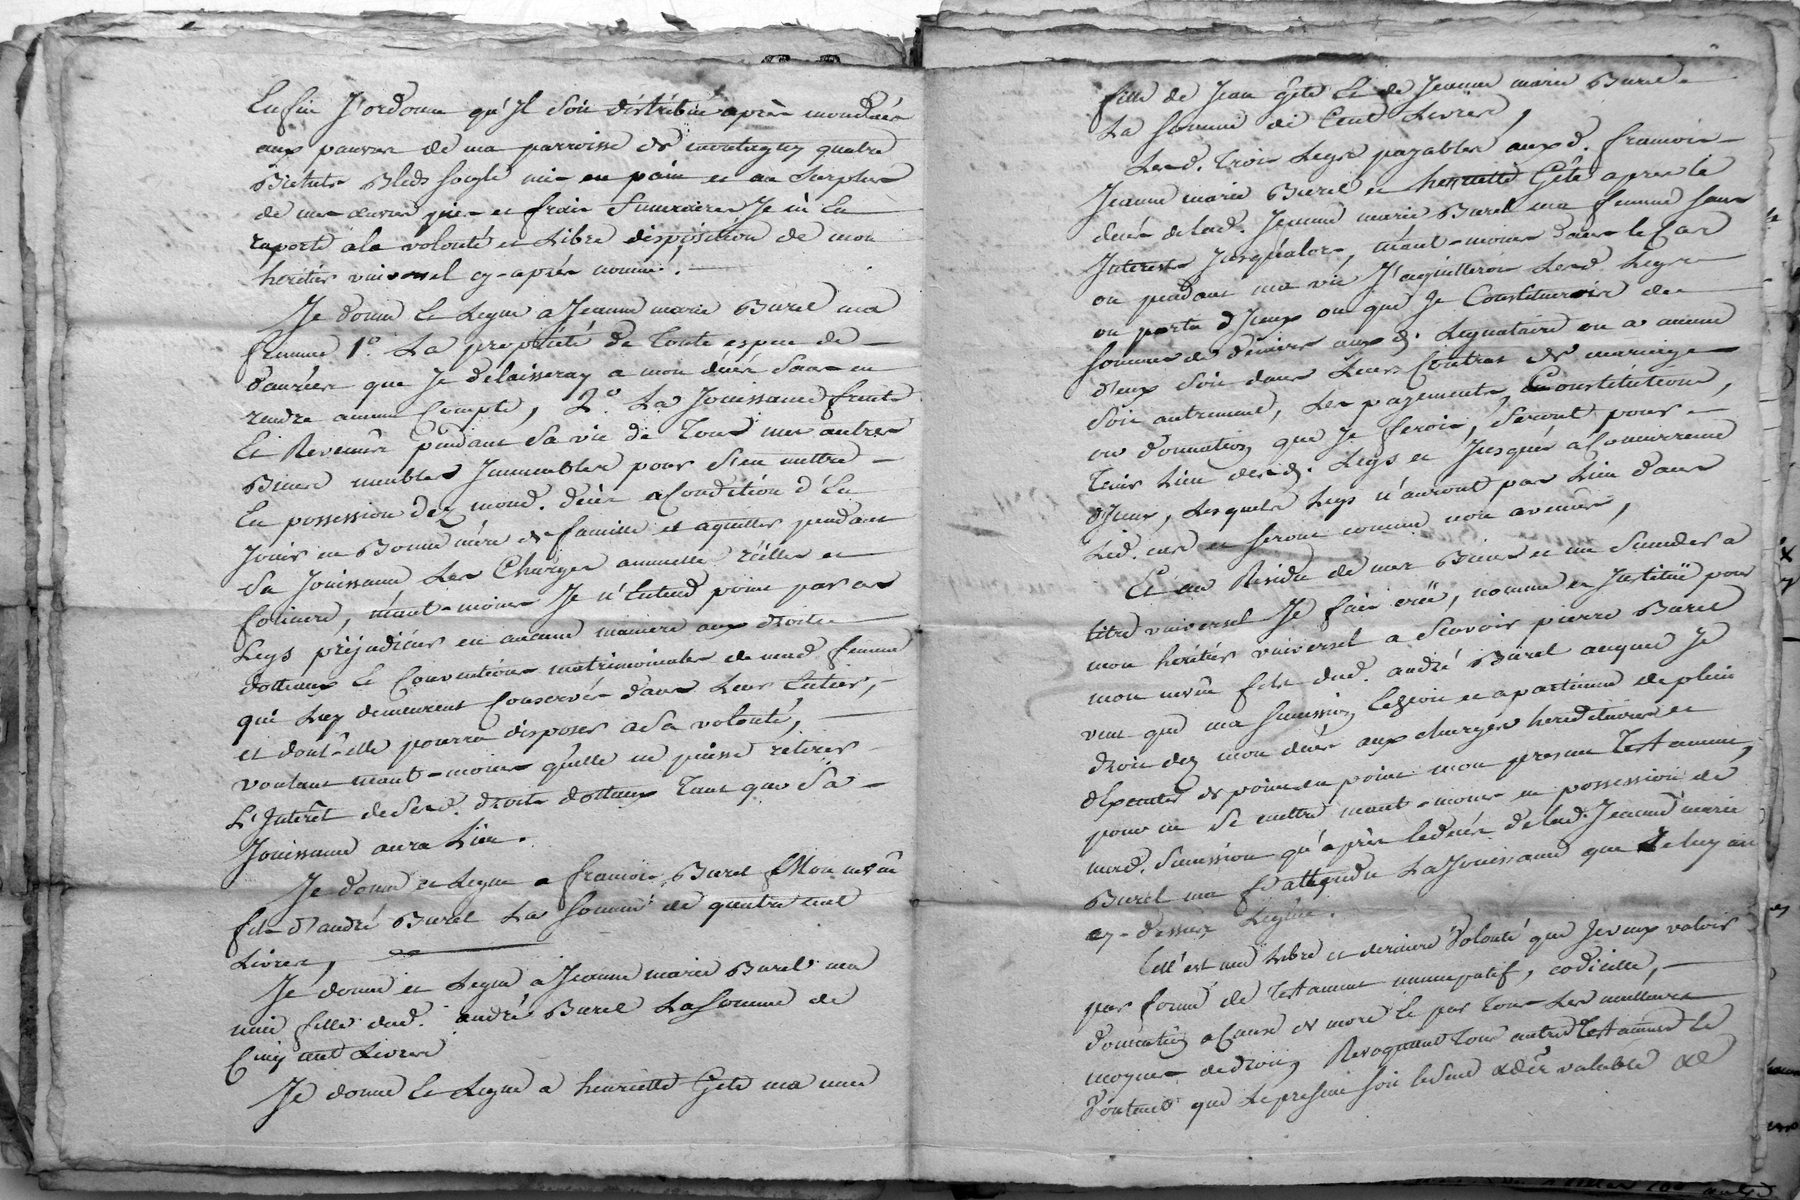 Enfin J'ordonne qu'Jl Soit distribué après mond. décès
aux pauvres de ma parroisse de montagny quatre
Bichets Bleds Seigle mis en pain et au Surplus
de mes œuvres pies et frais funeraires Je m'en
raporte a la volonté et Libre disposition de mon
heritier universel cy-après nommé.
Je donne Et Legue a Jeanne marie Burel ma
femme 1.º La propriété de Toute espece de
danrées que Je délaisseray a mon décès Sans en
rendre aucun Compte, 2.º La Jouissance fruits
Et Revenus pendant Sa vie de Tous mes autres
Biens meubles Jmmeubles pour S'en mettre
En possession dez mond. décès a Condition d'En
Jouir en Bonne mère de famille et aquitter pendant
Sa Jouissance Les Charges annuelles réelles et
foncieres, néant-moins Je n'Entend point par ce
Legs préjudicier en aucune maniere aux droits
dotteaux Et Conventions matrimoniales de mad. femme
qui Luy demeurent Conservés dans Leur Entier,
et dont-elle pourra disposer a Sa volonté,
voulant néant-moins qu'elle ne puisse retirer
L'Jnterêt de Sesd. droits dotteaux Tant que Sa
Jouissance aura Lieu.
Je donne et Legue a francois Burel Mon neveu
fils d'andré Burel La Somme de quatre cent
Livres,
Je donne et Legue a Jeanne marie Burel ma
niece fille dud. andré Burel La Somme de
Cinq cent Livres
Je donne Et Legue a henriette Gele ma niece
fille de Jean Gele Et de Jeanne marie Burel
La Somme de Cent Livres,
Lesd. Trois Legs payables auxd. francois
Jeanne marie Burel et henriette Gele apres le
décès de lad. Jeanne marie Burel ma femme Sans
Jnterets Jusqu'alors, néant-moins dans le Cas
ou pendant ma vie J'aquitterois Lesd. Legs
ou partie d'Jceux ou que Je Constituerois des
Sommes de deniers auxd. Legataires ou a aucuns
d'eux Soit dans Leurs Contrats de mariage
Soit autrement, Les payements, Constitutions,
ou donnations que Je ferois, Seront pour
Tenir Lieu desd. Legs et Jusques a Concurrence
d'Jceux, Lesquels Legs n'auront pas Lieu dans
Led. cas et Seront comme non avenus,
Et au Residu de mes Biens et ma Succession a
titre universel Je fais créé, nomme et Jnstitue pour
mon heritier universel a Scavoir pierre Burel
mon neveu fils dud. andré Burel auquel Je
veut que ma Succession Echoie et apartienne de plein
droit dez mon décès aux charges hereditaires et
d'Executer de point en point mon present Testament,
pour ne Se mettre néant-moins en possession de
mad. Succession qu'après le décès de lad. Jeanne marie
Burel ma f. attendu La Jouissance que Je luy ai
cy-dessus Leguée.
Telle est ma Libre et derniere Volonté que Je veux valoir
par forme de Testament nuncupatif, codicille,
donnation a Cause de mort Et par Tous Les meilleurs
moyens de droit, Revoquant Tous autres Testaments Et
Voulant que Le present Soit le Seul valable